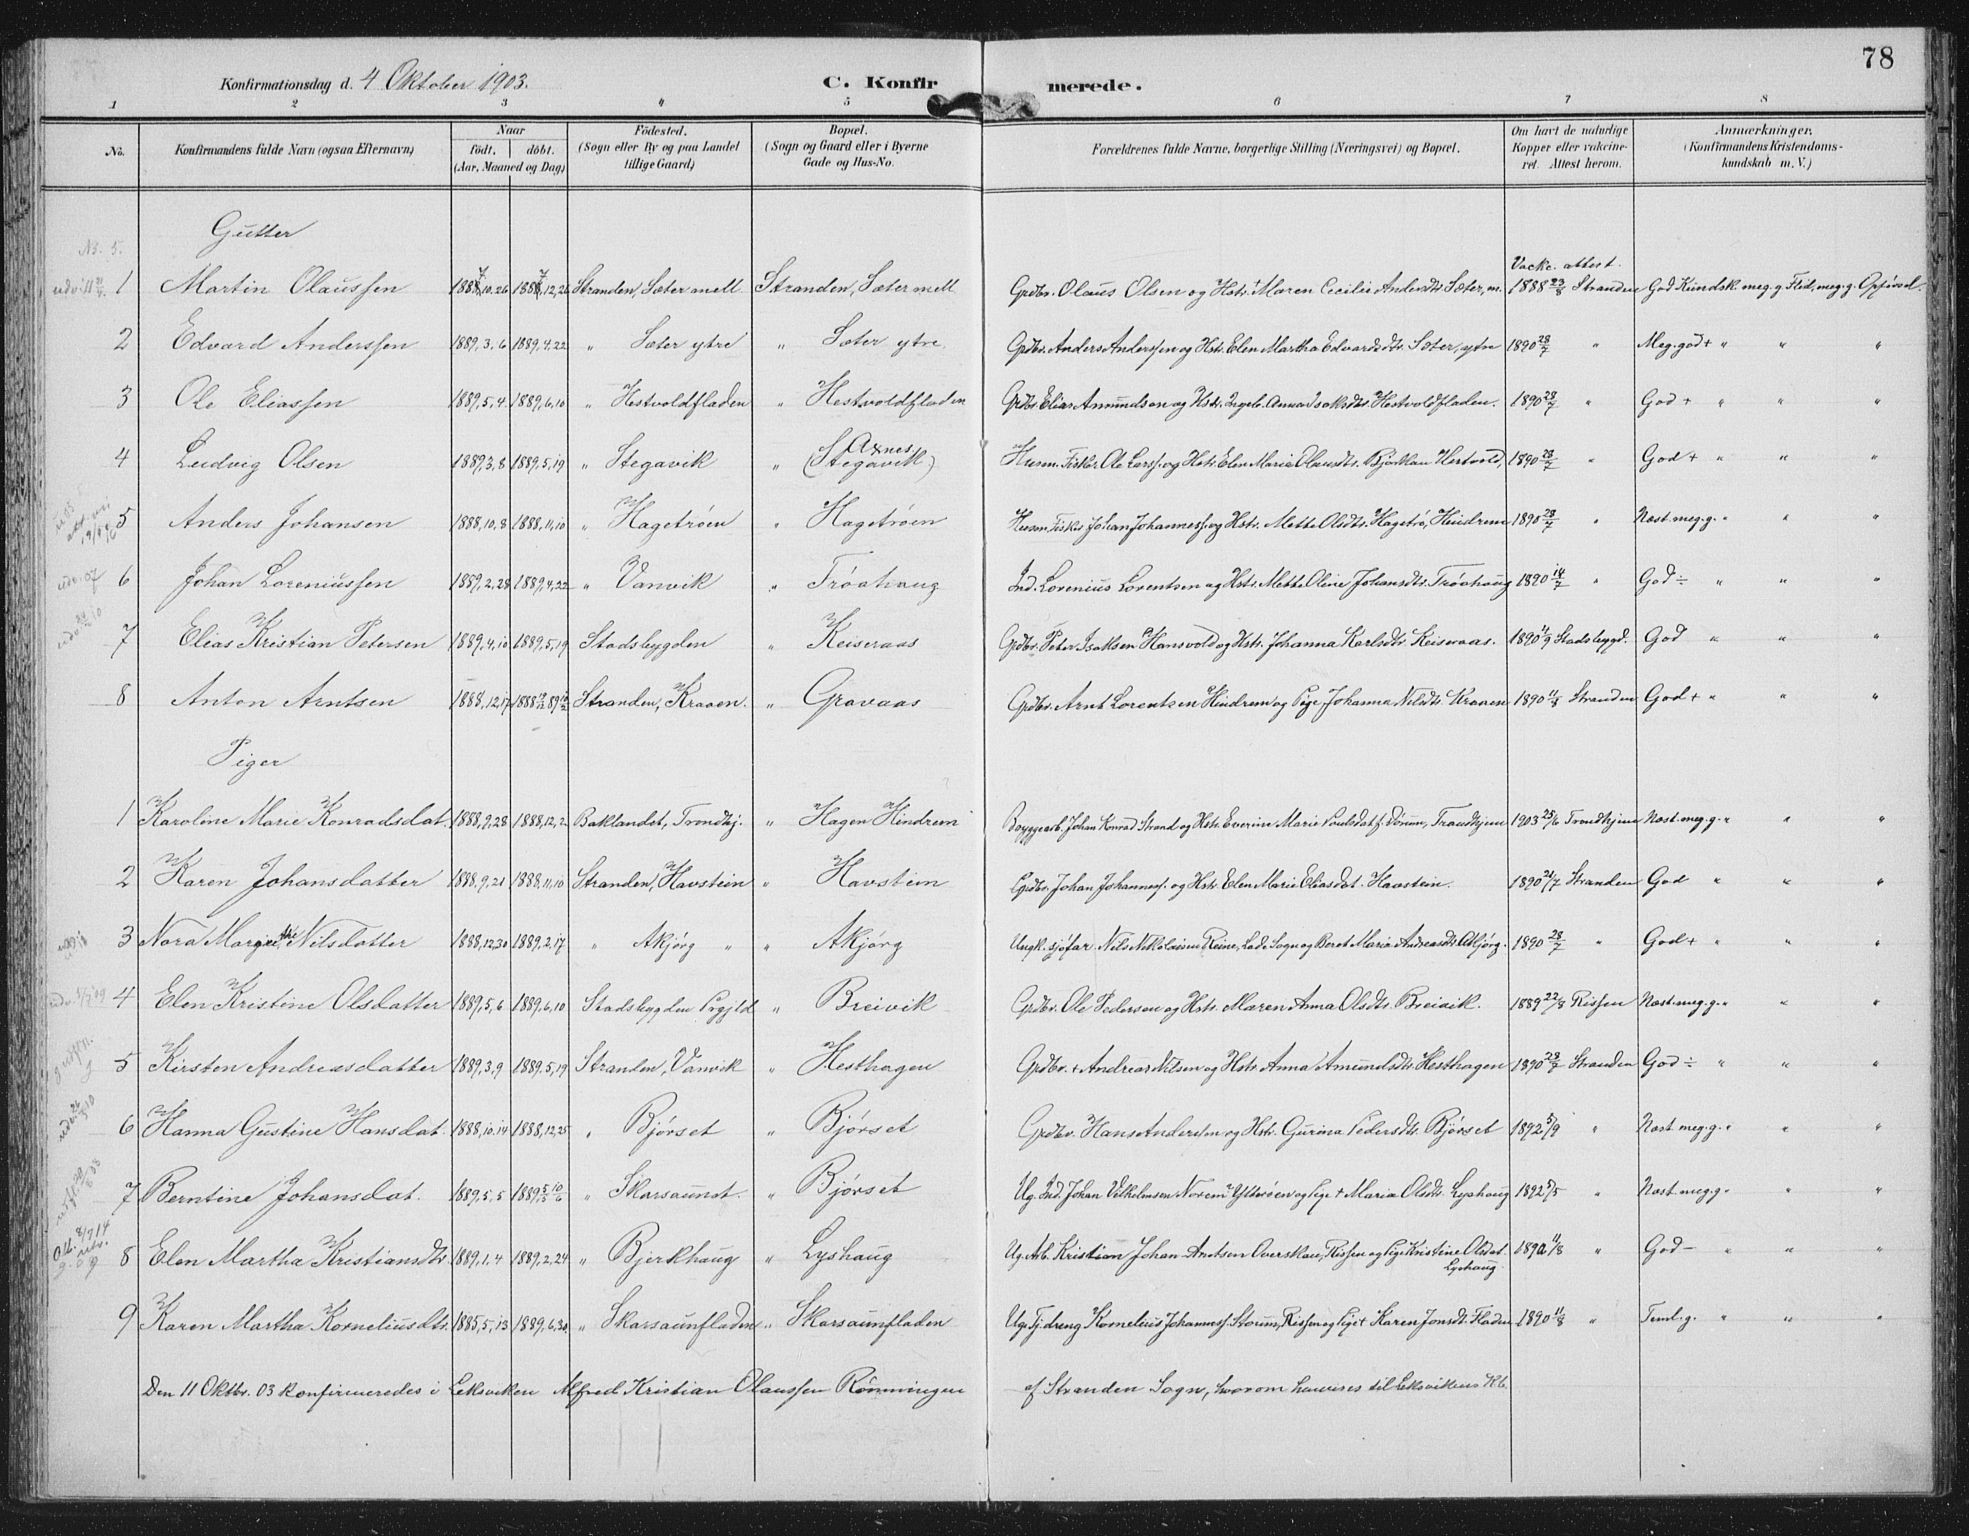 78
Konfirmationsdag d. 4 Oktober 1903.
C. Konfirmerede.
1 2 3 4 5 6 7 8
No. Konfirmandens fulde Navn (ogsaa Efternavn) Naar födt, döbt. (Aar, Maaned og Dag) Födested. (Sogn eller By og paa Landet tillige Gaard) Bopæl. (Sogn og Gaard eller i Byerne Gade og Hus-No. Forældrenes fulde Navne, borgerlige Stilling (Næringsvei) og Bopæl. Om havt de naturlige Kopper eller vakcineret. Attest herom. Anmærkninger, (Konfirmandens Kristendomskundskab m. V.)
Gutter
Vackc. attest.
1 Martin Olaussen 1887,10,26 1887,12,26 Stranden, Sæter mell Stranden, Sæter mell Grdbr. Olaus Olsen og Hstr. Maren Cecilie Andersdtr. Sæter, m. 1888 23/8 Stranden God Kundsk. meg. g Flid, meg. g. Opførsel.
2 Edvard Anderssen 1889,3,6 1889,4,22 " Sæter ytre " Sæter ytre Grdbr. Anders Anderssen og Hstr. Elen Martha Edvardsdtr. Sæter, ytre 1890 28/7 " Meg. god + " " "
3 Ole Eliassen 1889,5,4 1889,6,10 " Hestvoldfladen " Hestvoldfladen Grdbr. Elias Amundsen og Hstr. Ingeb. Anna Isaksdtr. Hestvoldfladen. 1890 28/7 " God + " " "
4 Ludvig Olsen 1889,3,8 1889,5,19 " Stegavik " Axnes (Stegavik) Husm. Fisker Ole Larss. og Hstr. Elen Marie Olausdtr. Bjørklan Hestvold, 1890 28/7 " God + " " "
5 Anders Johansen 1888,10,8 1888,11,10 " Hagetrøen " Hagetrøen Husm. Fisker Johan Johanness. og Hstr. Mette Olsdtr. Hagetrø, Hindrem 1890 28/7 " Næst. meg. g. " " "
6 Johan Loreniussen 1889,2,28 1889,4,22 " Vanvik " Trøahaug Ind. Lorenius Lorentsen og Hstr. Mette Oline Johansdtr. Trøahaug 1890 14/7 " God ÷ " " "
7 Elias Kristian Petersen 1889,4,10 1889,5,19 Stadsbygden " Keiseraas Grdbr. Peter Isaksen Hansvold og Hstr. Johanna Karlsdtr. Keiseraas. 1890 11/9 Stadsbygd. God " " "
8 Anton Arntsen 1888,12,17 Stranden, Kraaen. " Gravaas Grdbr. Arnt Lorentsen Hindrem og Pige Johanna Nilsdtr. Kraaen 1890 11/8 Stranden God + " " "
Piger
1 Karoline Marie Konradsdat. 1888,9,28 1888,12,2 Baklandet, Trondhj. " Hagen Hindrem Byggearb. Johan Konrad Strand og Hstr. Everine Marie Poulsdat f. Dørum, Trondhjem 1903 25/6 Trondhjem Næst. meg. g. " " "
2 Karen Johansdatter 1888,9,21 1888,11,10 Stranden, Havstein " Havstein Grdbr. Johan Johanness. og Hstr. Elen Marie Eliasdat. Havstein. 1890 21/7 Stranden God " " "
3 Nora Margrethe Nilsdatter 1888,12,30 1889,2,17 " Akjørg " " Akjørg Ungk. sjøfar. Nils Nikolaisen Reine, Lade Sogn og Beret Maria Andreasdtr. Akjørg. 1890 28/7 " God + " " "
4 Elen Kristine Olsdatter 1889,5,6 1889,6,10 Stadsbygden Prgjld " Breivik Grdbr. Ole Pedersen og Hstr. Maren Anna Olsdtr. Breivik. 1889 22/8 Rissen Næst. meg. g. " " "
5 Kirsten Andreasdatter 1889,3,9 1889,5,19 Stranden, Vanvik " Hesthagen Grdbr. + Andreas Nilsen og Hstr. Anna Amundsdtr. Hesthagen 1890 28/7 Stranden God ÷ " " "
6 Hanna Gustine Hansdat. 1888,10,14 1888,12,25 " Bjørset " Bjørset Grdbr. Hans Andersen og Hstr. Gurina Pedersdtr. Bjørset 1892 5/9 " Næst. meg. g. " " "
7 Berntine Johansdat. 1889,5,5 " Skarsaunet. " Bjørset Ug. Ind. Johan Vilhelmsen Norem Ytterøen og Pige + Maria Olsdtr. Lyshaug 1892 5/5 " Næst. meg. g. " " "
8 Elen Martha Kristiansdtr. 1889,1,4 1889,2,24 " Bjerkhaug " Lyshaug Ug. Arb. Kristian Johan Antsen Overskau, Rissen og Pige Kristine Olsdat. Lyshaug 1892 11/8 " God – " " "
9 Karen Martha Korneliusdtr. 1885,5,13 1889,6,30 " Skarsaunfladen " Skarsaunfladen Ug. Tjdreng Kornelius Johanness. Storum, Rissen og Pige + Karen Jonsdtr. Fladen 1890 11/8 " Teml. g. " " "
Den 11 Oktbr. 03 konfirmeredes i Leksviken Alfred Kristian Olaussen Rønningen af Stranden Sogn, hvorom henvises til Leksvikens Kb.